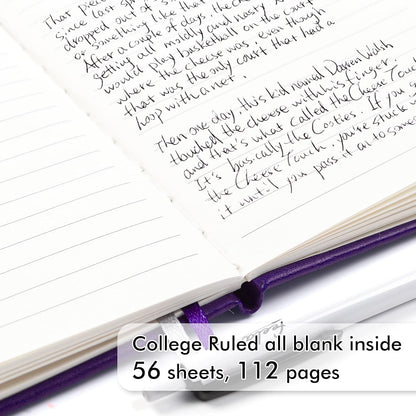 That piece
Since last sp
dropped out of s
or something like that
After a couple of days, the chee
getting all moldly and nasty. N
would play basketball on the court
where the cheese was, even though
that was the only court that had a
hoop with a net.
Then one day, this kid named Darren Walsh
touched the cheese with his finger,
and that's what called the Cheese Touch
It's basically the Cooties. If you g
the Cheese Touch, you're stuck
it until you pass it on to someo
College Ruled all blank inside
56 sheets, 112 pages